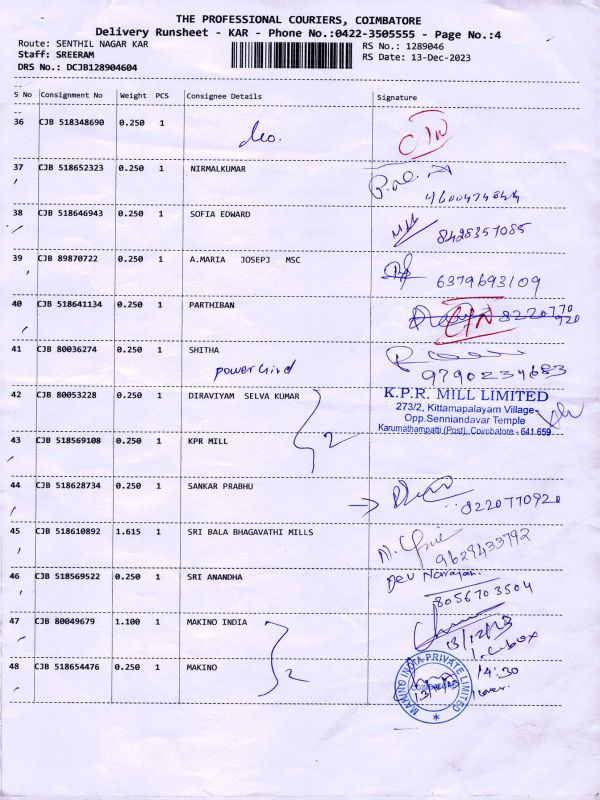 THE PROFESSIONAL COURIERS, COIMBATORE
Delivery Runsheet - KAR - Phone No.:0422-3505555 - Page No.:4
Route: SENTHIL NAGAR KAR RS No.: 1289046
Staff: SREERAM RS Date: 13-Dec-2023
DRS No.: DCJB128904604
S No Consignment No Weight PCS Consignee Details Signature
36 CJB 518348690 0.250 1
37 CJB 518652323 0.250 1 NIRMALKUMAR
38 CJB 518646943 0.250 1 SOFIA EDWARD
8428357085
39 CJB 89870722 0.250 1 A.MARIA JOSEPJ MSC
6379693109
40 CJB 518641134 0.250 1 PARTHIBAN
8220770
920
41 CJB 80036274 0.250 1 SHITHA
9790234683
42 CJB 80053228 0.250 1 DIRAVIYAM SELVA KUMAR
K.P.R. MILL LIMITED
273/2, Kittampalayam Village-
Opp.Senniandavar Temple
Karumathampatti (Post), Coimbatore - 641 659
2
43 CJB 518569108 0.250 1 KPR MILL
44 CJB 518628734 0.250 1 SANKAR PRABHU
8220770920
45 CJB 518610892 1.615 1 SRI BALA BHAGAVATHI MILLS
9629433792
46 CJB 518569522 0.250 1 SRI ANANDHA
Dev Narayan.
8056703504
47 CJB 80049679 1.100 1 MAKINO INDIA
13/12/23
2
48 CJB 518654476 0.250 1 MAKINO
MAKINO INDIA PRIVATE LIMITED
14:30
1 cover.